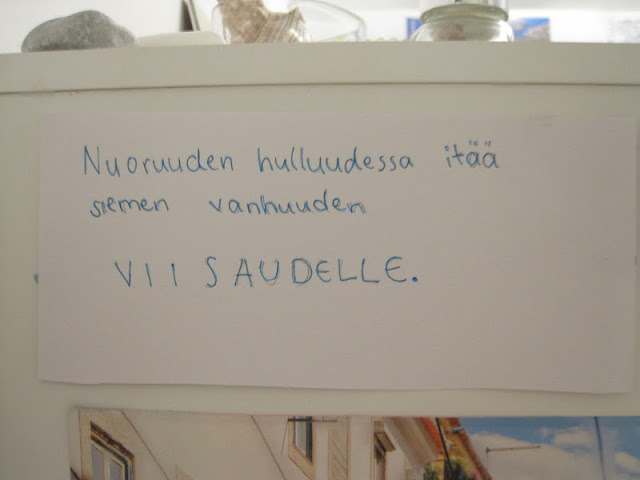 Nuoruuden hulluudessa itää
siemen vanhuuden
VIISAUDELLE.